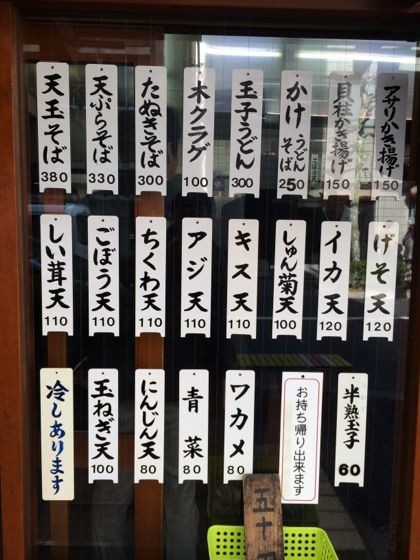 アサリかき揚げ 150
貝柱かき揚げ 150
かけ うどん そば 250
玉子うどん 300
木クラゲ 100
たぬきそば 300
天ぷらそば 330
天玉そば 380
げそ天 120
イカ天 120
しゅん菊天 100
キス天 110
アジ天 110
ちくわ天 110
ごぼう天 110
しい茸天 110
半熟玉子 60
お持ち帰り出来ます
ワカメ 80
青菜 80
にんじん天 80
玉ねぎ天 100
冷しあります
五十